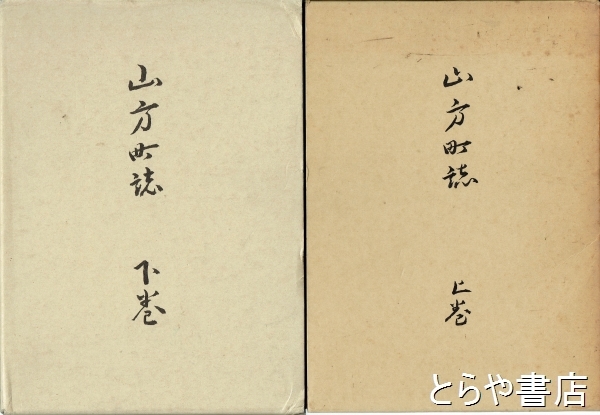 山方町誌
上巻
山方町誌
下巻
とらや書店